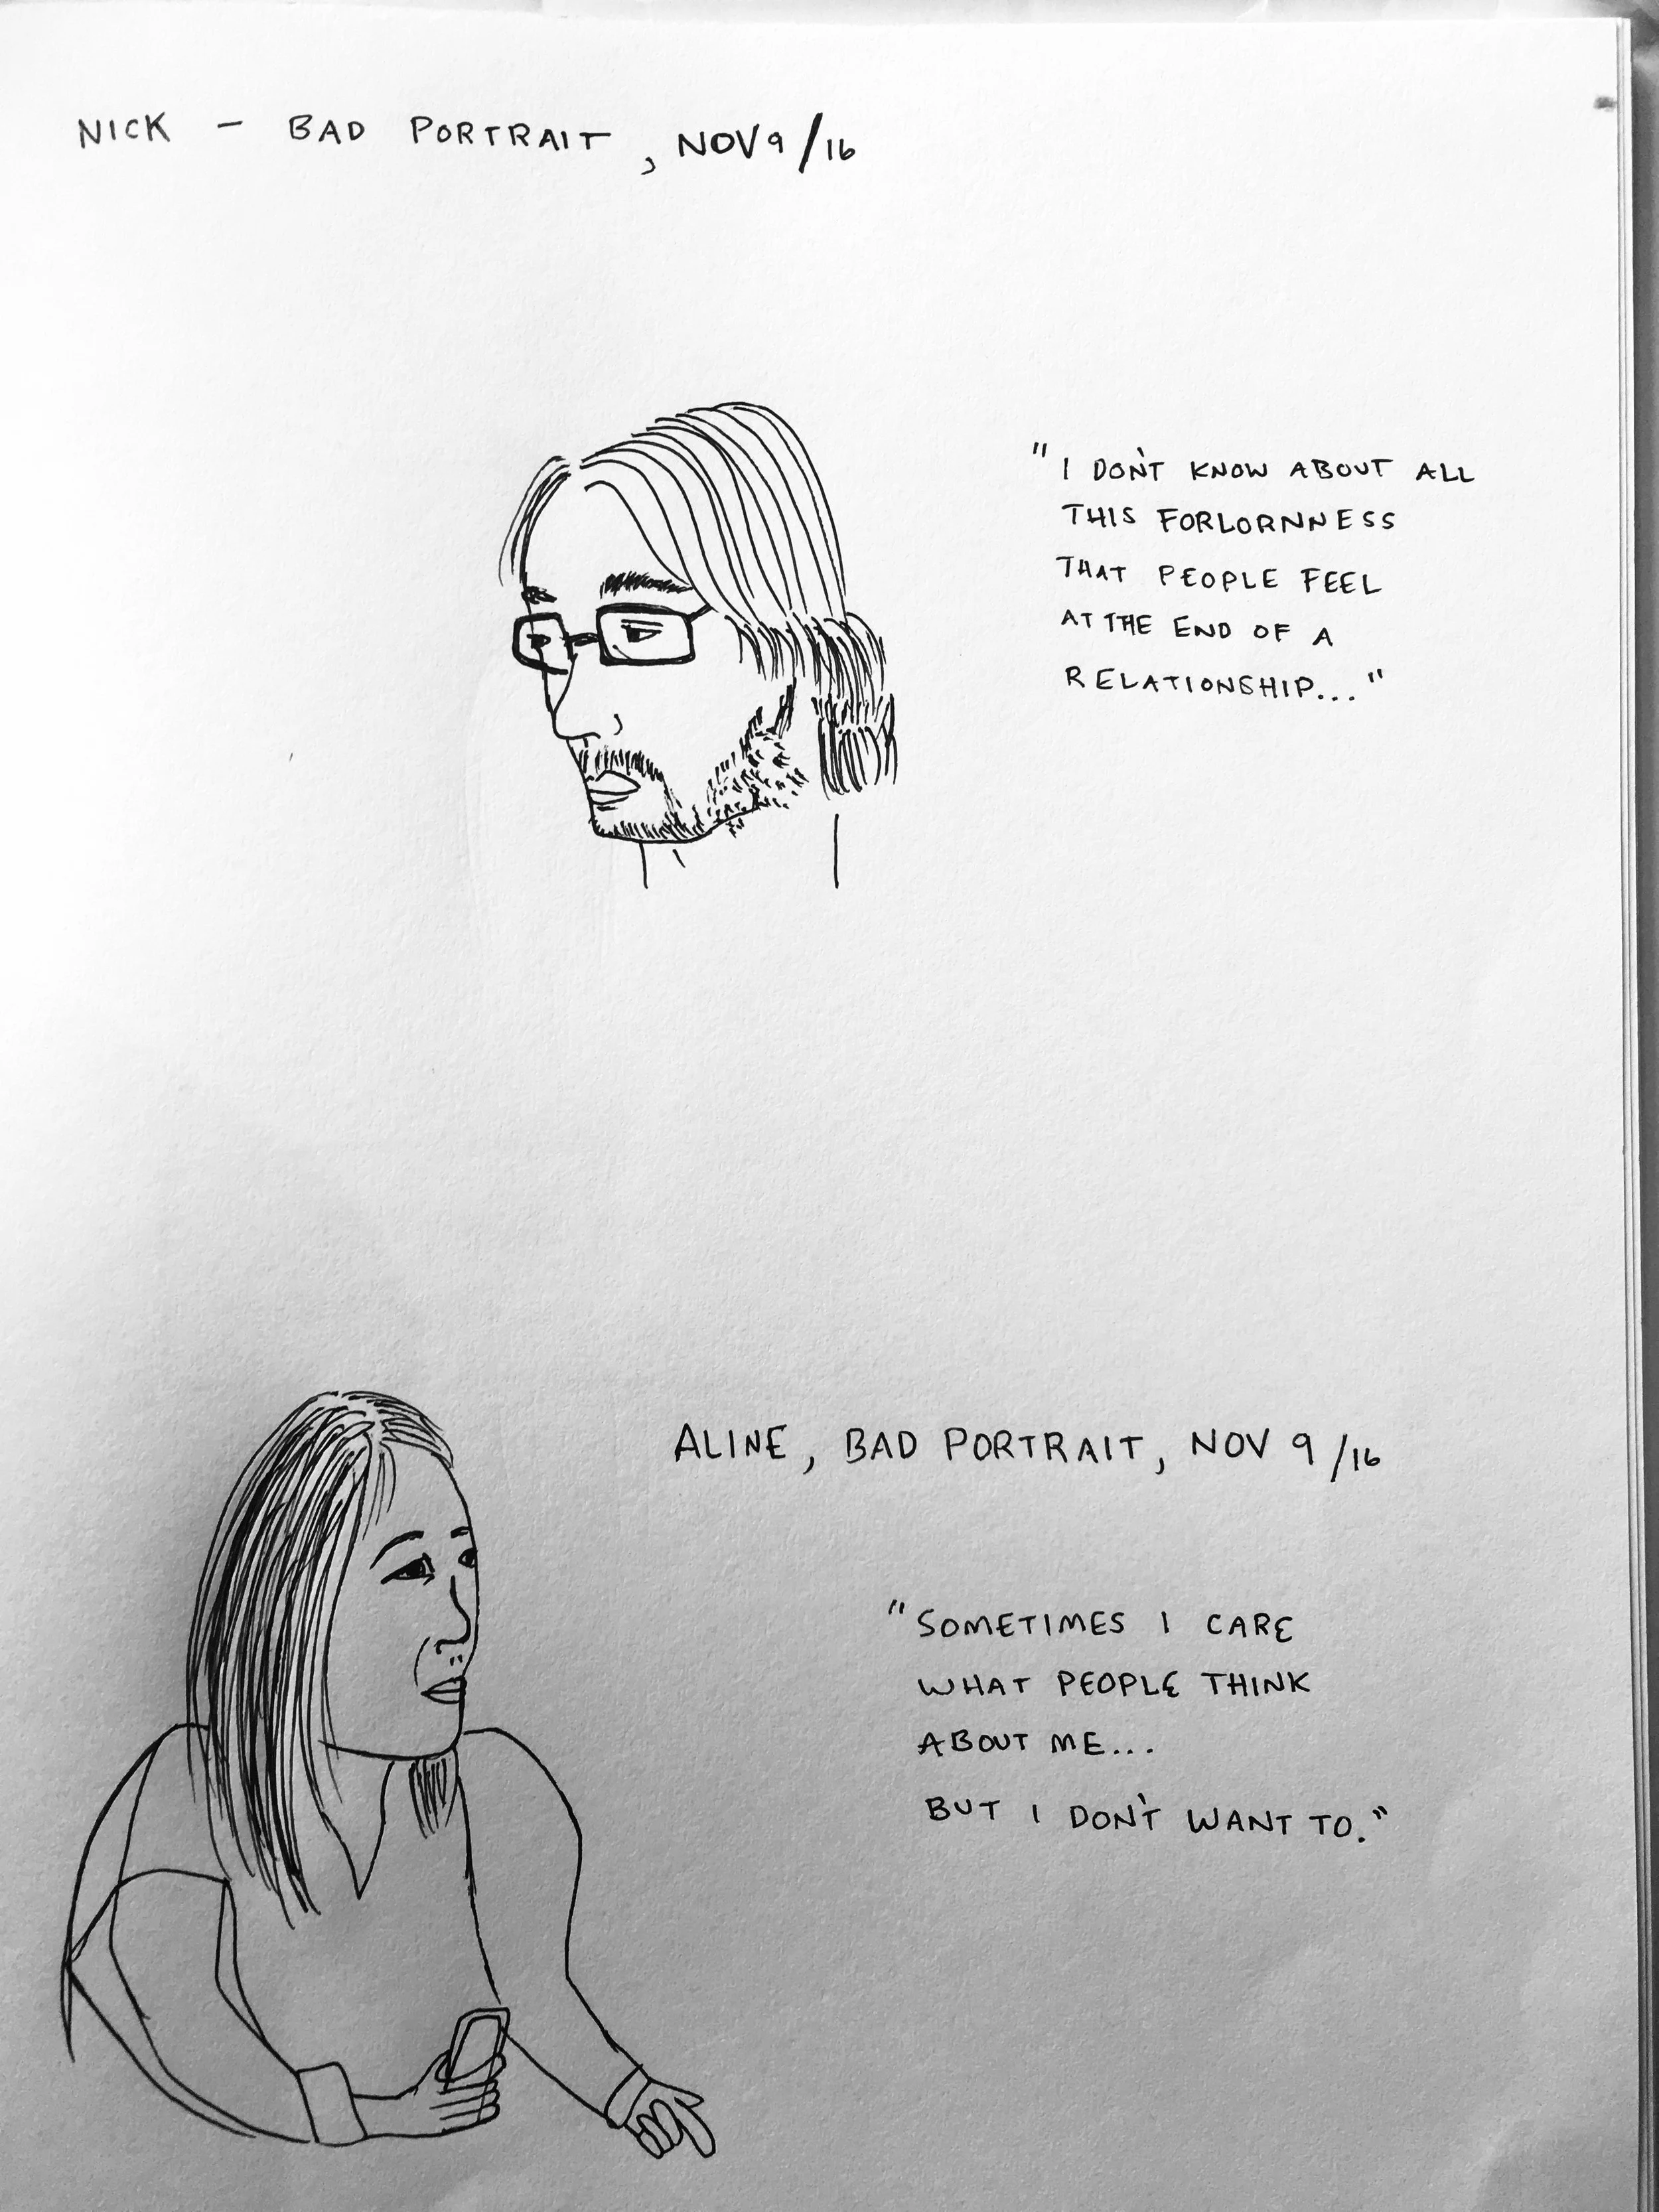 NICK - BAD PORTRAIT, NOV 9/16
"I DON'T KNOW ABOUT ALL
THIS FORLORNNESS
THAT PEOPLE FEEL
AT THE END OF A
RELATIONSHIP..."
ALINE, BAD PORTRAIT, NOV 9/16
"SOMETIMES I CARE
WHAT PEOPLE THINK
ABOUT ME...
BUT I DON'T WANT TO."